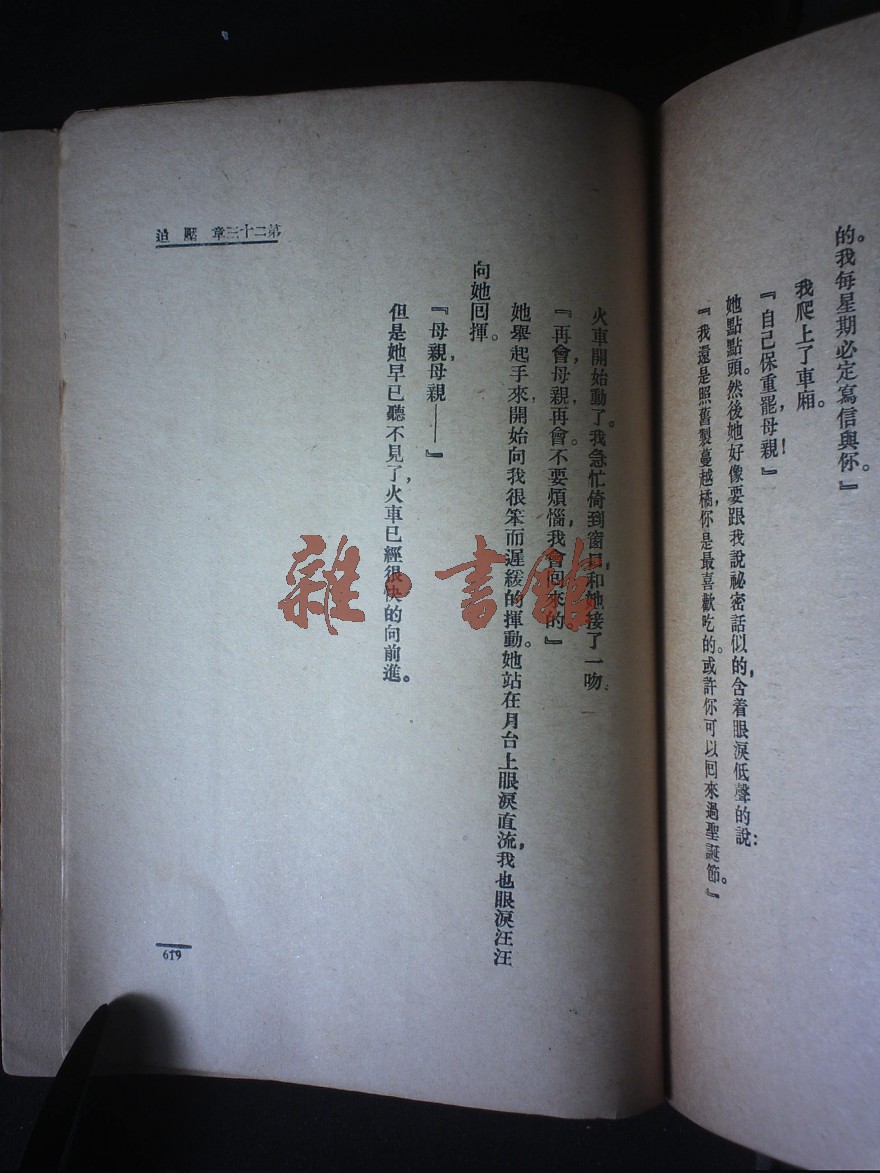 的。我每星期必定寫信與你。』
我爬上了車廂。
『自己保重罷，母親！』
她點點頭。然後她好像要跟我說祕密話似的，含着眼淚低聲的說：
『我還是照舊製蔓越橘，你是最喜歡吃的。或許你可以回來過聖誕節。』
火車開始動了。我急忙倚到窗口，和她接了一吻。
『再會，母親，再會。不要煩惱，我會回來的。』
她舉起手來，開始向我很笨而遲緩的揮動。她站在月台上眼淚直流，我也眼淚汪汪
向她回揮。
『母親，母親——』
但是她早已聽不見了，火車已經很快的向前進。
第二十三章 壓迫
619
雜·書館